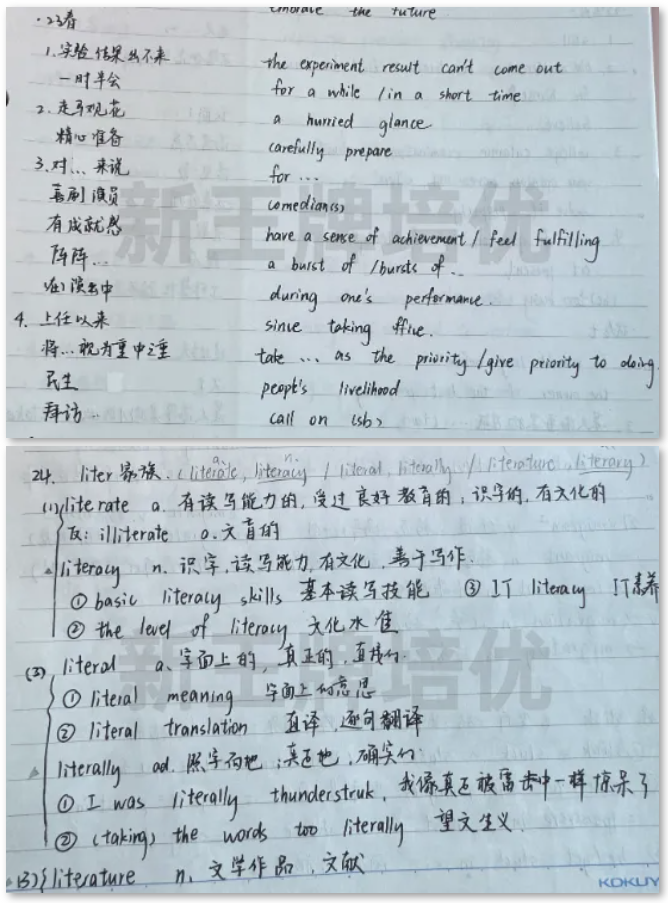 embrace the future
·23春
1.实验结果出不来 the experiment result can't come out
一时半会 for a while / in a short time
2.走马观花 a hurried glance
精心准备 carefully prepare
3.对...来说 for ...
喜剧演员 comedian(s)
有成就感 have a sense of achievement / feel fulfilling
阵阵... a burst of / bursts of ...
演出中 during one's performance.
4.上任以来 since taking ffice.
将...视为重中之重 take ... as the priority / give priority to doing.
民生 peopt's livelihood
拜访 call on (sb)
新王牌培优
24. liter家族.(literate, literacy / literal, literally / literature, literary)
a. n.
(1) literate a. 有读写能力的,受过良好教育的,识字的,有文化的
反: illiterate a.文盲的
literacy n. 识字,读写能力,有文化,善于写作.
① basic literacy skills 基本读写技能 ③ IT literacy IT素养
② the level of literacy 文化水准
(2) literal a.字面上的,真正的,直接的.
① literal meaning 字面上的意思
② literal translation 直译,逐句翻译
literally ad. 照字面地;真正地,确实的.
① I was literally thunderstruk, 我像真正被雷击中一样惊呆了
② (taking) the words too literally 望文生义.
(3) literature n. 文学作品,文献
新王牌培优
KOKUY